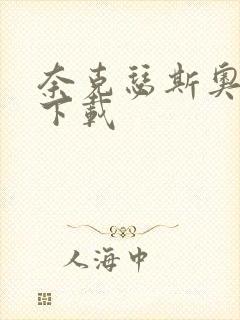 奈克瑟斯奥
下载
人海中